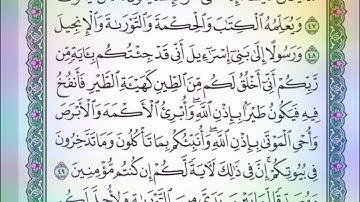 وَيُعَلِّمُهُ ٱلْكِتَٰبَ وَٱلْحِكْمَةَ وَٱلتَّوْرَىٰةَ وَٱلْإِنجِيلَ
٤٨ وَرَسُولًا إِلَىٰ بَنِىٓ إِسْرَٰٓءِيلَ أَنِّى قَدْ جِئْتُكُم بِـَٔايَةٍ مِّن
رَّبِّكُمْ أَنِّىٓ أَخْلُقُ لَكُم مِّنَ ٱلطِّينِ كَهَيْـَٔةِ ٱلطَّيْرِ فَأَنفُخُ
فِيهِ فَيَكُونُ طَيْرًۢا بِإِذْنِ ٱللَّهِ وَأُبْرِئُ ٱلْأَكْمَهَ وَٱلْأَبْرَصَ
وَأُحْىِ ٱلْمَوْتَىٰ بِإِذْنِ ٱللَّهِ وَأُنَبِّئُكُم بِمَا تَأْكُلُونَ وَمَا تَدَّخِرُونَ
فِى بُيُوتِكُمْ إِنَّ فِى ذَٰلِكَ لَـَٔايَةً لَّكُمْ إِن كُنتُم مُّؤْمِنِينَ ٤٩